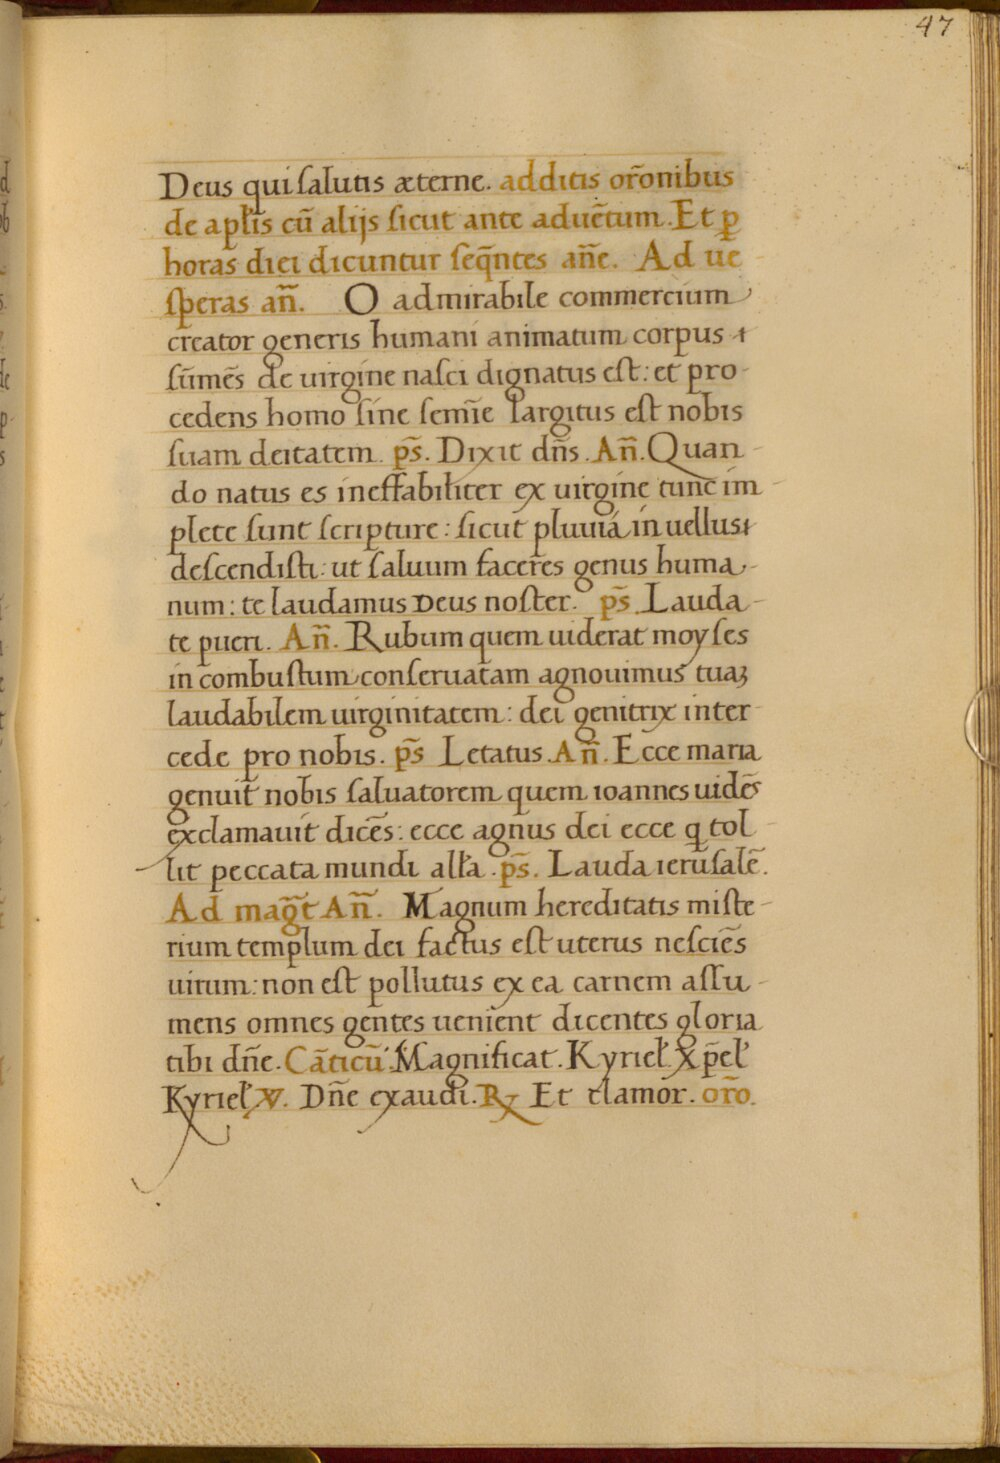 47
Deus qui salutis æterne. additis or̃onibus
de apl̃is cũ alijs sicut ante aduẽtum. Et ꝑ
horas diei dicuntur seq̃ntes añe. Ad ue
speras añ. O admirabile commercium
creator generis humani animatum corpus
sũmẽs de uirgine nasci dignatus est: et pro-
cedens homo sine semĩe largitus est nobis
suam deitatem. ps̃. Dixit dñs. Añ. Quan-
do natus es ineffabiliter ex uirgine tunc im-
plete sunt scripture: sicut pluuiá in uellus
descendisti: ut saluum facer̃es genus huma-
num: te laudamus Deus noster. ps̃. Lauda-
te pueri. Añ. Rubum quem uiderat moyses
in combustum conseruatam agnouimus tuaꝫ
laudabilem uirginitatem: dei genitrix inter-
cede pro nobis. ps̃ Letatus. Añ. Ecce maria
genuit nobis saluatorem quem ioannes uidẽs
exclamauit dicẽs: ecce agnus dei ecce q̃ tol-
lit peccata mundi alła. ps̃. Lauda ierusalẽ.
Ad mag̃t Añ. Magnum hereditatis miste-
rium templum dei factus est uterus nesciẽs
uirum: non est pollutus ex ea carnem assu-
mens omnes gentes uenient dicentes gloria
tibi dñe. Cãticũ. Magnificat. Kyrieł Xp̃eł
Kyrieł ℣. Dñe exaudi. ℟ Et clamor. or̃o.